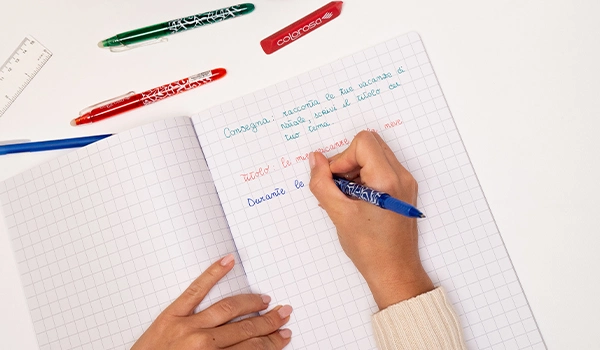 colorosa
Consegna: racconta le tue vacanze di
Natale, scrivi il titolo ed
tuo tema.
Titolo le mie vacanze neve
Durante le